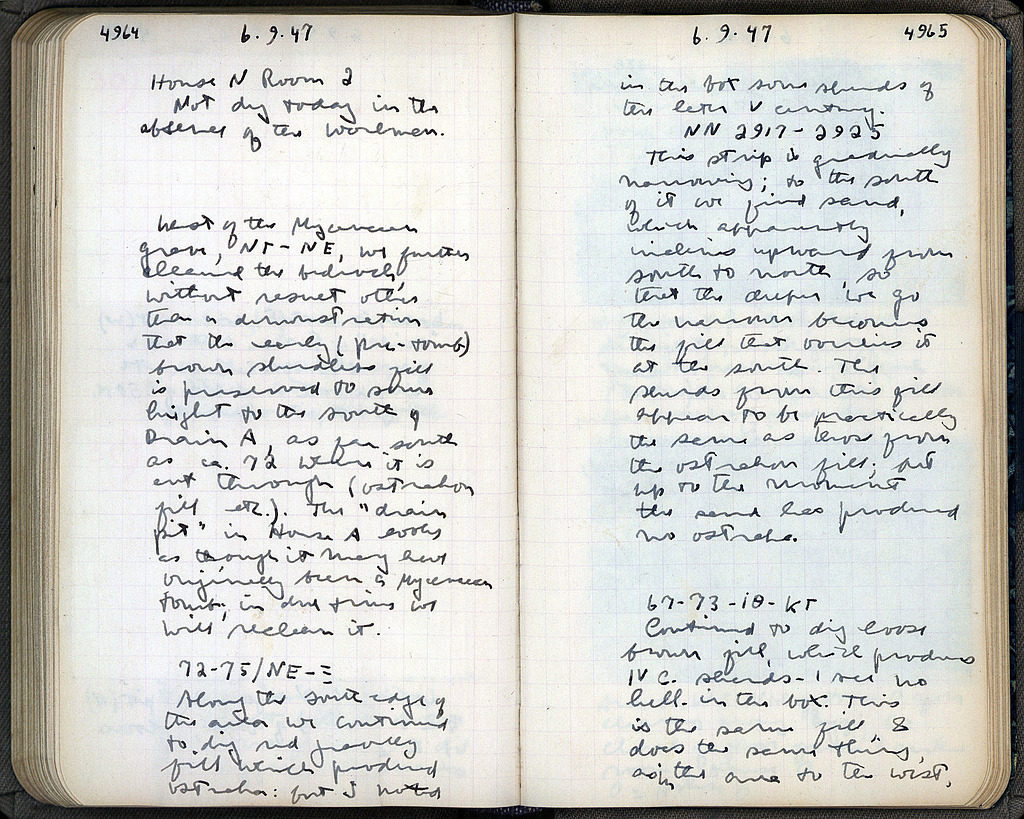 4964
6.9.47
House N Room 2
Not dug today in the
absence of the workmen.
West of the Mycenaean
grave, NT-NE, we further
cleaned the bedrock,
without result other
than a demonstration
that the early (pre-tomb)
brown sherdless fill
is preserved to some
height to the south of
Drain A, as far south
as ca. 72 where it is
cut through (ostrakon
fill etc.). The "drain
pit" in House A looks
as though it may have
originally been a Mycenaean
tomb; in due time we
will reclean it.
72-75/NE-Ξ
Along the south edge of
the area we continued
to dig red gravelly
fill which produced
ostraka: but I noted
6.9.47
4965
in the box some sherds of
the later V century.
NN 2917-2925
This strip is gradually
narrowing; to the south
of it we find sand,
which apparently
inclines upward from
south to north, so
that the deeper we go
the narrower becomes
the fill that overlies it
at the south. The
sherds from this fill
appear to be practically
the same as those from
the ostrakon fill; but
up to the moment
the sand has produced
no ostraka.
67-73-ΙΘ-ΚΓ
Continued to dig loose
brown fill, which produces
IV C. sherds - I see no
hell. in the box. This
is the same fill &
does the same thing,
as in the area to the west,